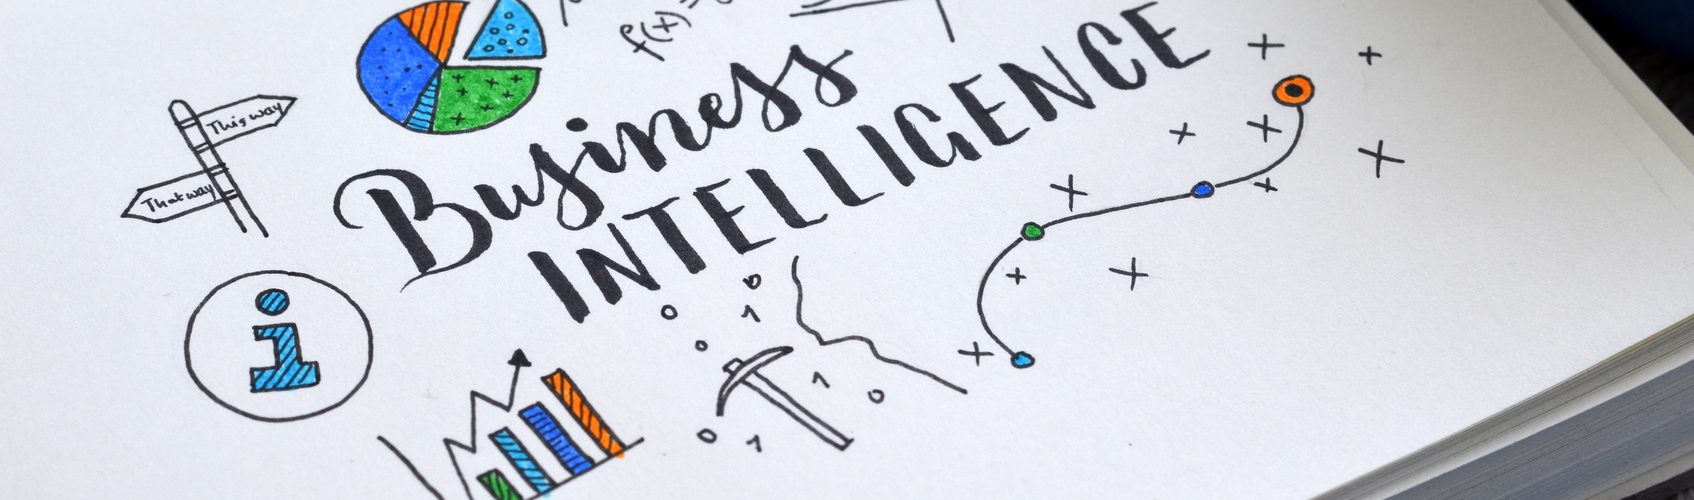 f(x)=
This way
That way
Business
INTELLIGENCE
i
0
0
1
0
1
0
0
1